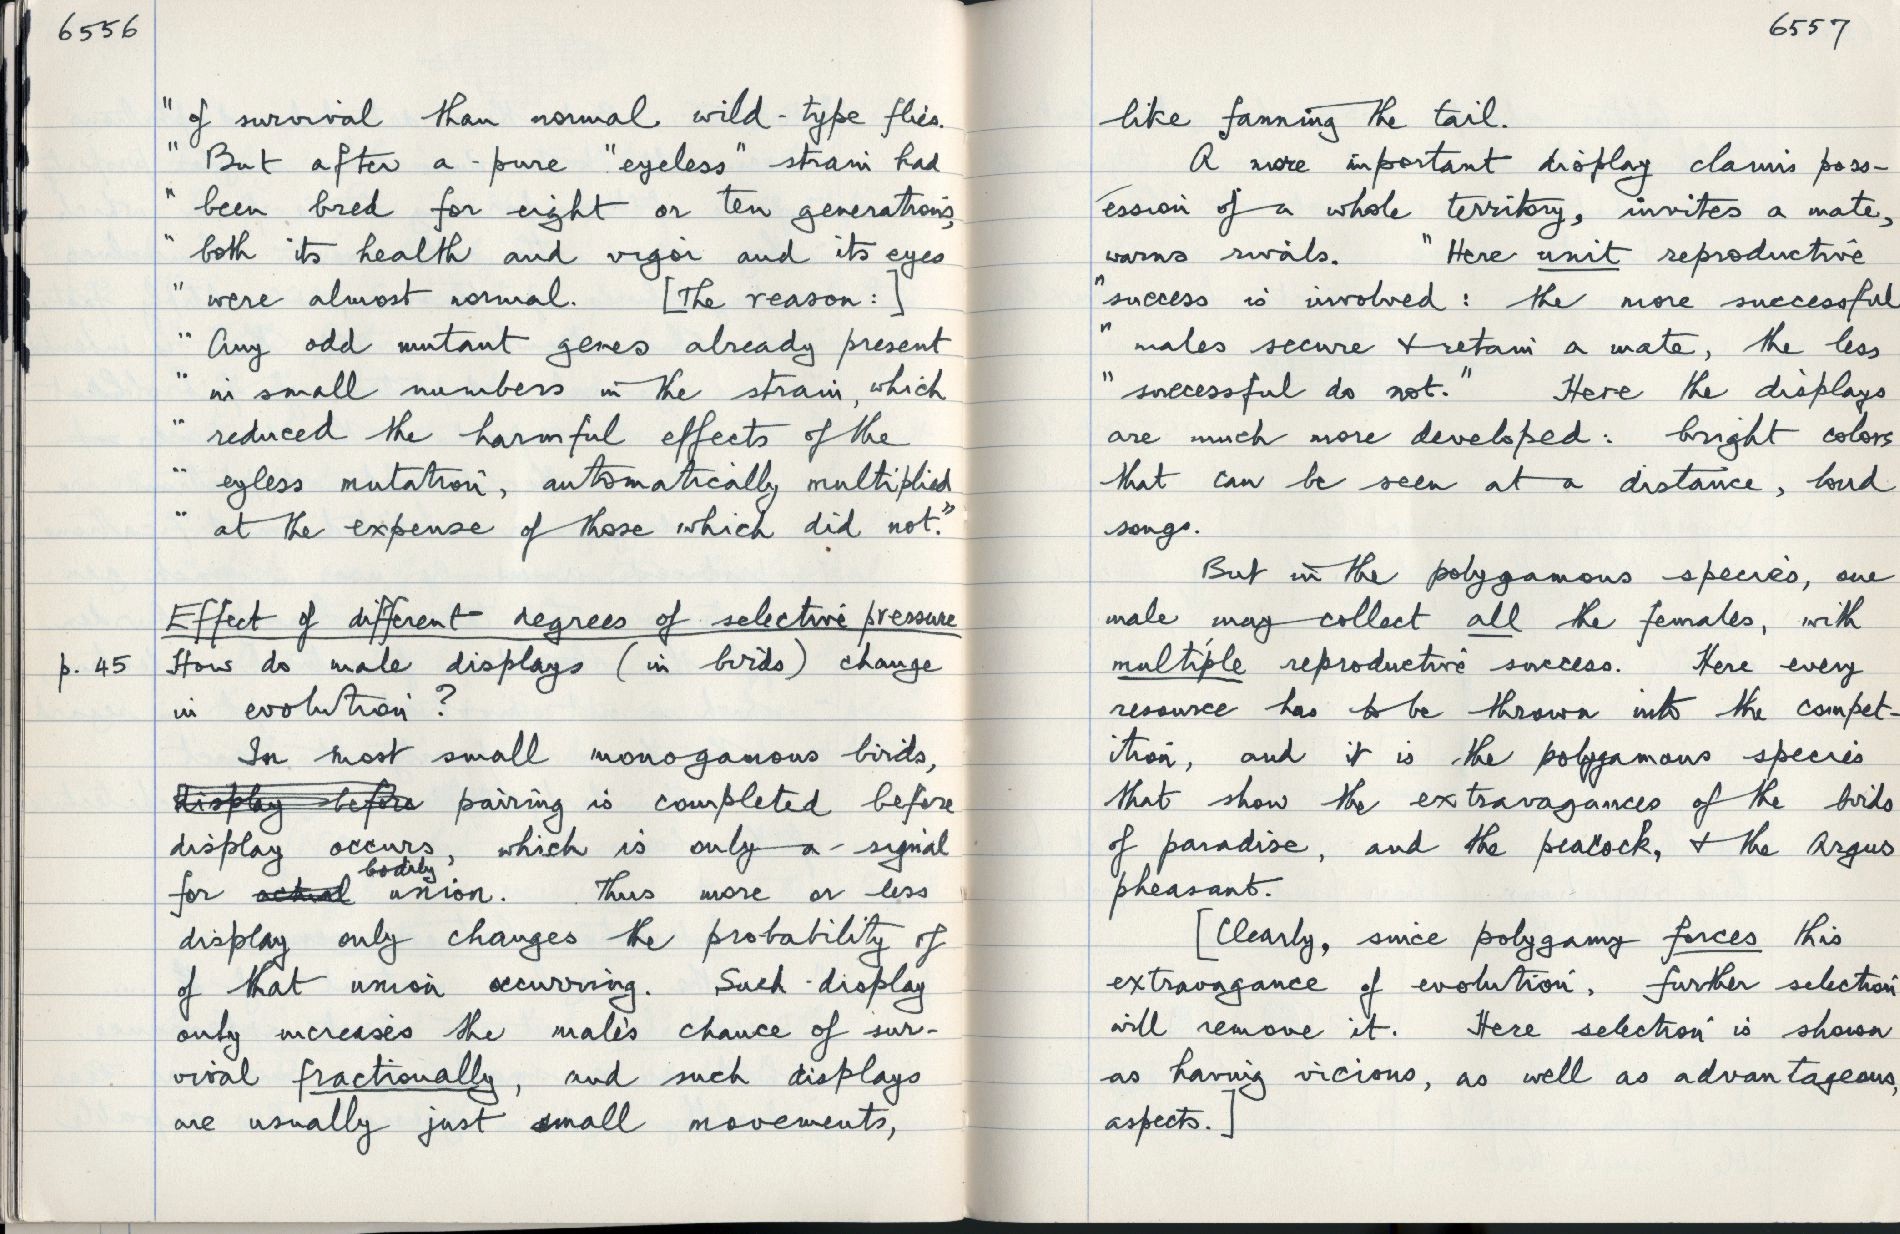 6556
" of survival than normal wild-type flies.
" But after a pure "eyeless" strain had
" been bred for eight or ten generations,
" both its health and vigor and its eyes
" were almost normal. [The reason:]
" Any odd mutant genes already present
" in small numbers in the strain, which
" reduced the harmful effects of the
" eyless mutation, automatically multiplied
" at the expense of those which did not."
Effect of different degrees of selective pressure
p. 45 How do male displays (in birds) change
in evolution?
In most small monogamous birds,
display before pairing is completed before
display occurs, which is only a signal
bodily
for actual union. Thus more or less
display only changes the probability of
of that union occurring. Such display
only increases the male's chance of sur-
vival fractionally, and such displays
are usually just small movements,
6557
like fanning the tail.
A more important display claims poss-
ession of a whole territory, invites a mate,
warns rivals. "Here unit reproductive
"success is involved: the more successful
" males secure & retain a mate, the less
" successful do not." Here the displays
are much more developed: bright colors
that can be seen at a distance, loud
songs.
But in the polygamous species, one
male may collect all the females, with
multiple reproductive success. Here every
resource has to be thrown into the compet-
ition, and it is the polygamous species
that show the extravagances of the birds
of paradise, and the peacock, & the Argus
pheasant.
[Clearly, since polygamy forces this
extravagance of evolution, further selection
will remove it. Here selection is shown
as having vicious, as well as advantageous,
aspects.]